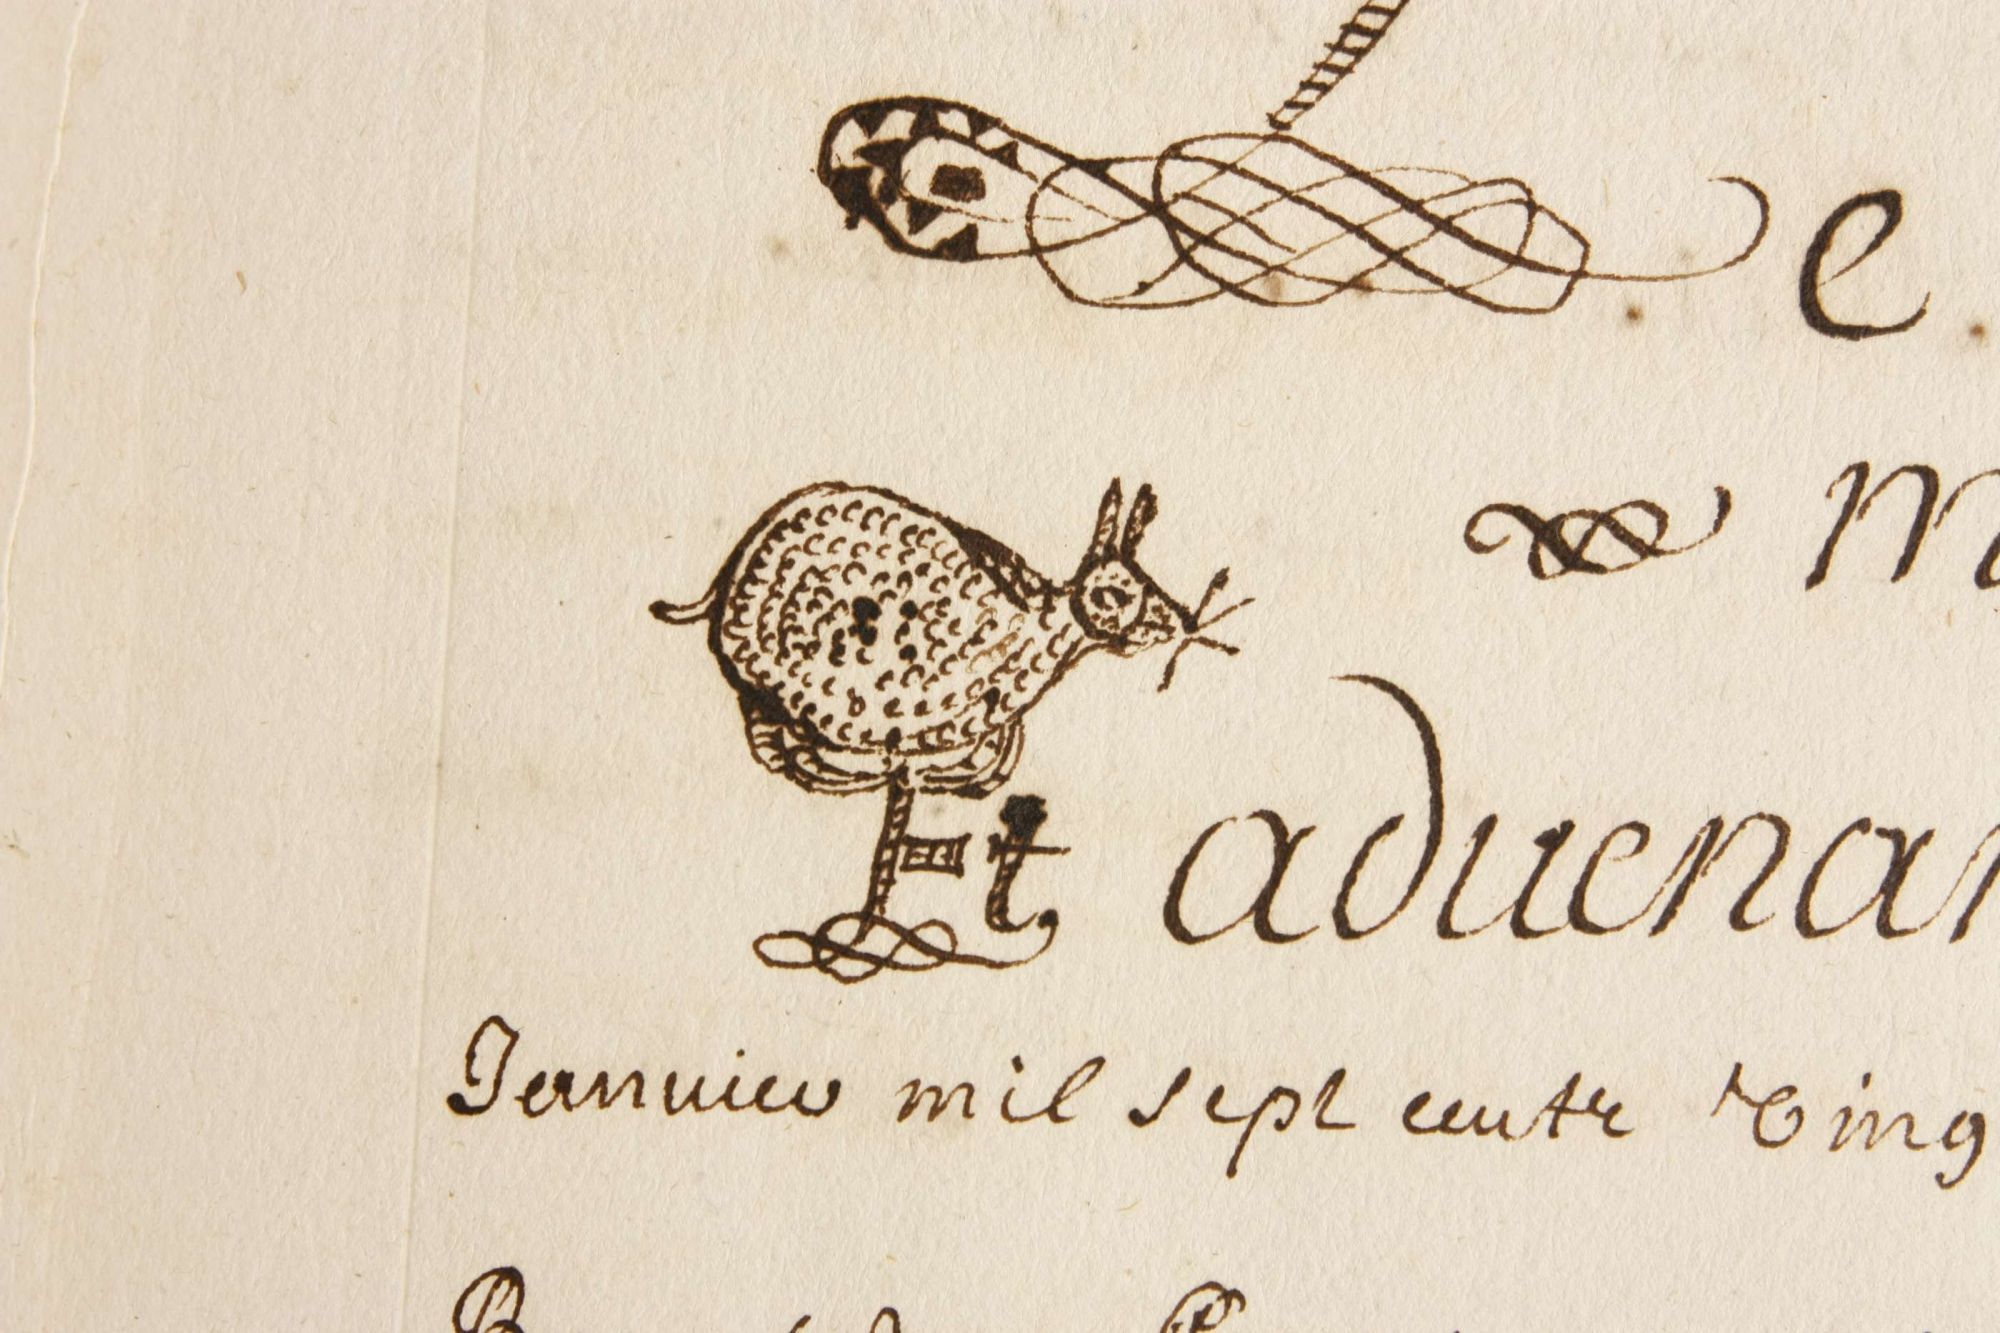 e
m
Et aduenan
Januier mil sept cents Cinq